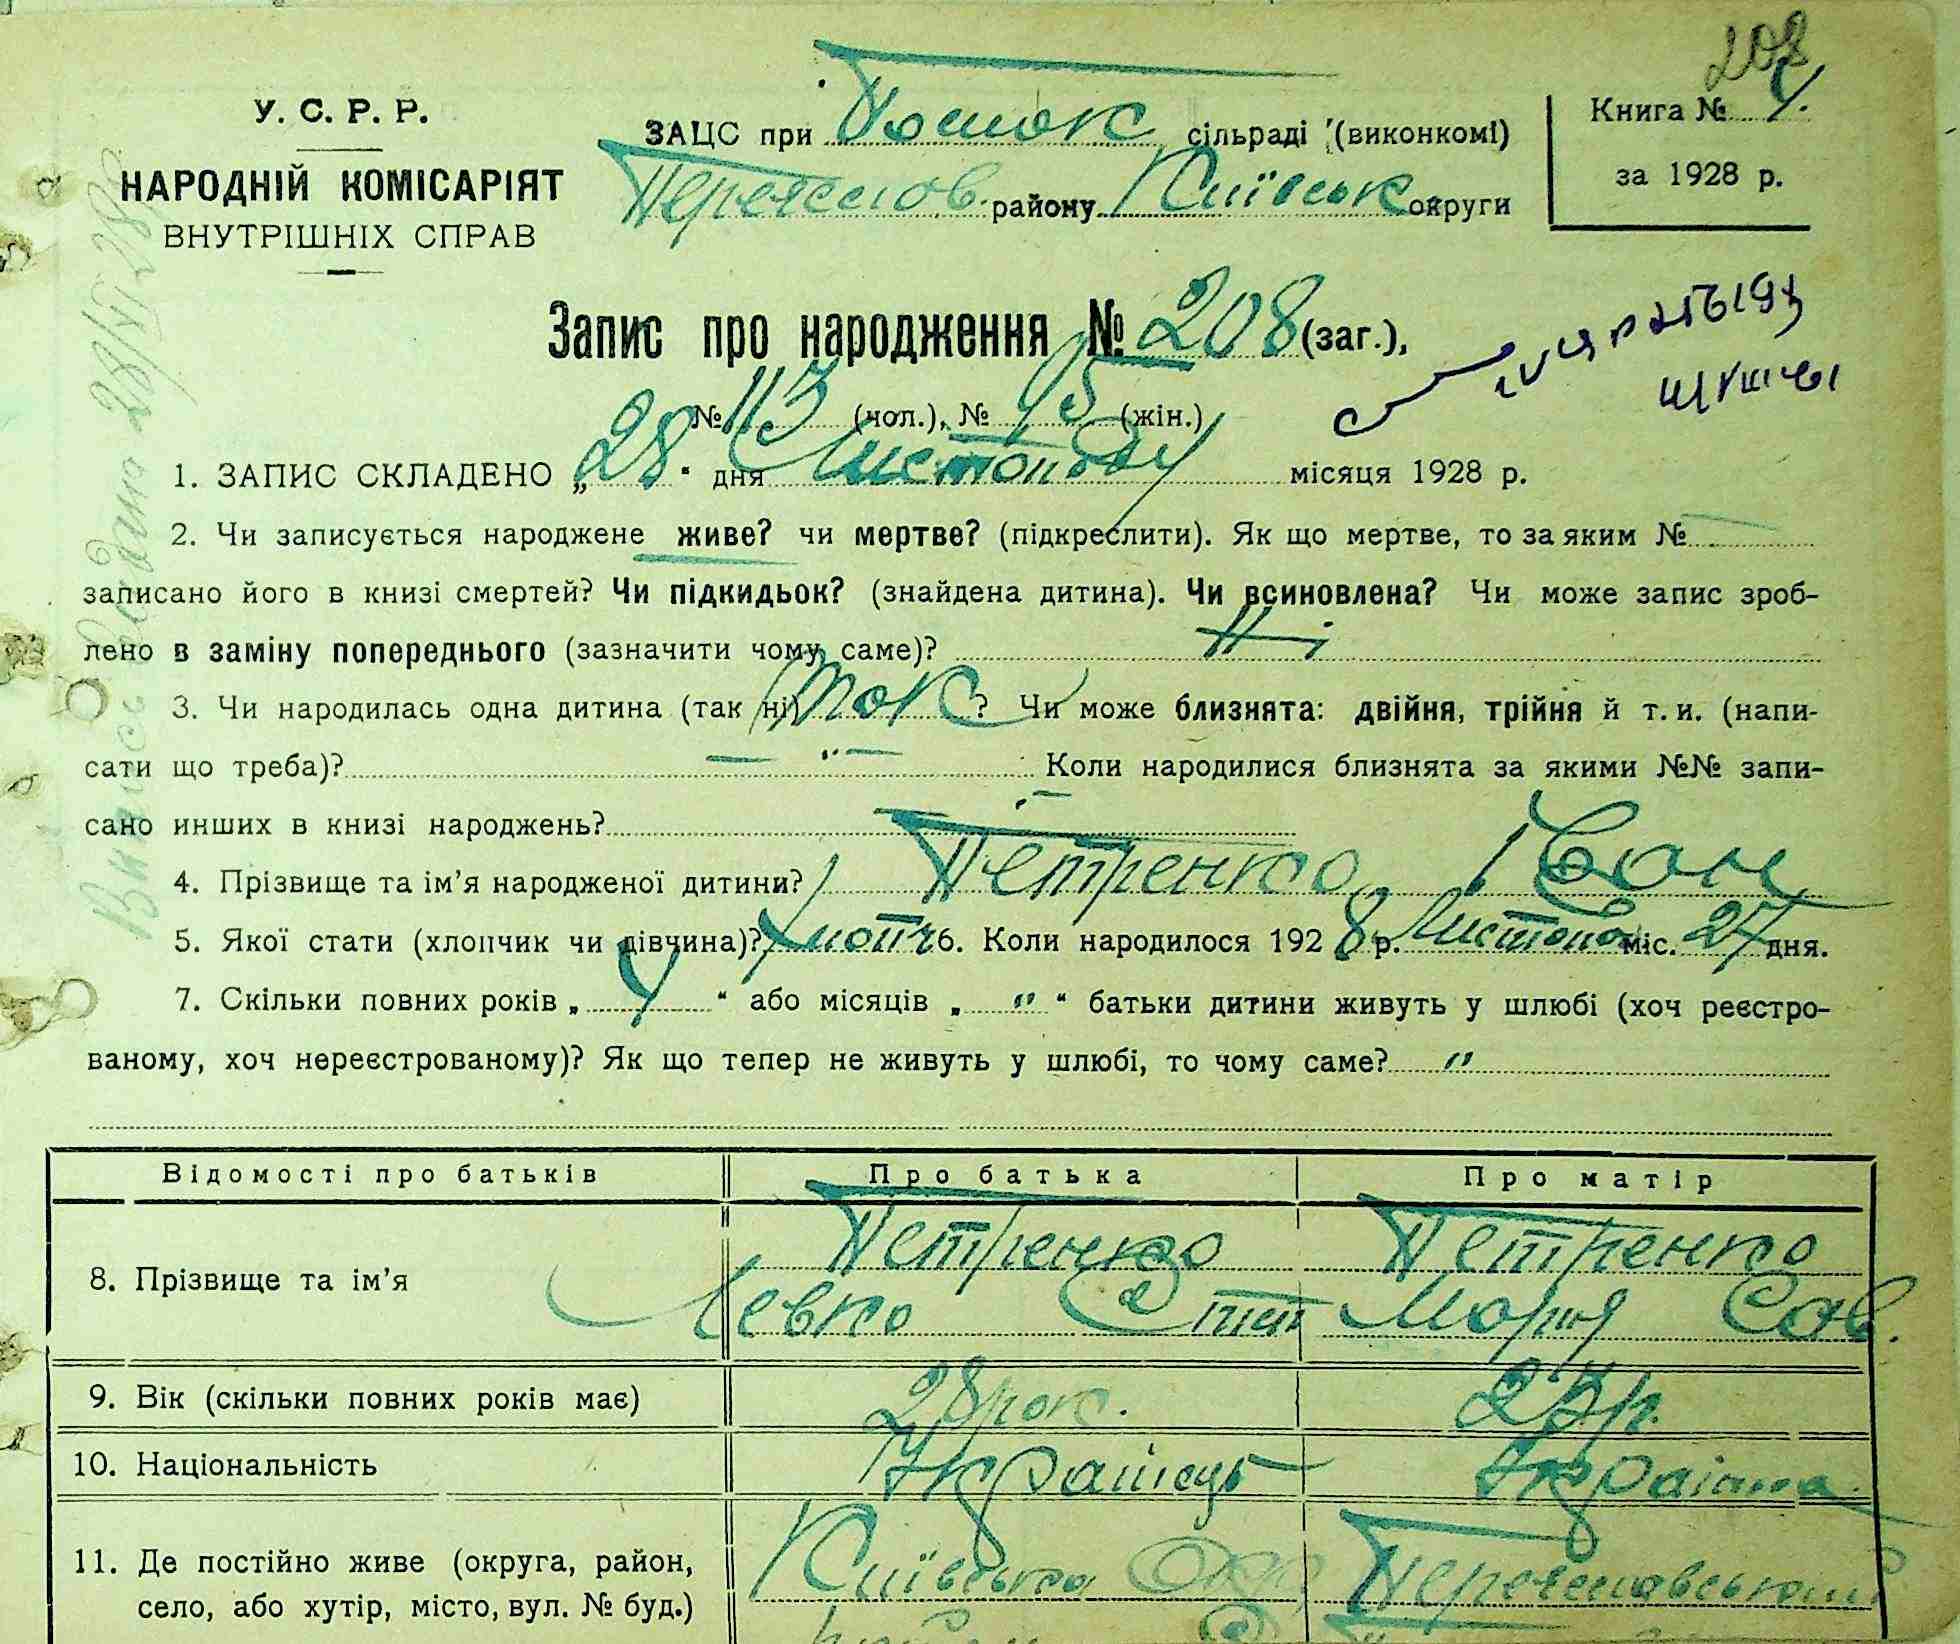 208
У. С. Р. Р.
НАРОДНІЙ КОМІСАРІЯТ
ВНУТРІШНІХ СПРАВ
ЗАЦС при сільраді (виконкомі)
Переяслов. району Київськ округи
Книга № 4.
за 1928 р.
Запис про народження № 208 (заг.),
№ 113 (чол.), № 95 (жін.)
1. ЗАПИС СКЛАДЕНО „ 28 " дня Листопаду місяця 1928 р.
2. Чи записується народжене живе? чи мертве? (підкреслити). Як що мертве, то за яким №
записано його в книзі смертей? Чи підкидьок? (знайдена дитина). Чи всиновлена? Чи може запис зроб-
лено в заміну попереднього (зазначити чому саме)? Ні
3. Чи народилась одна дитина (так ні) так ? Чи може близнята: двійня, трійня й т. и. (напи-
сати що треба)? — " — Коли народилися близнята за якими №№ запи-
сано инших в книзі народжень?
4. Прізвище та ім'я народженої дитини? Петренко Іван
5. Якої стати (хлопчик чи дівчина)? хлопч 6. Коли народилося 1928 р. Листопа міс. 27 дня.
7. Скільки повних років „ 4 " або місяців „ " " батьки дитини живуть у шлюбі (хоч реєстро-
ваному, хоч нереєстрованому)? Як що тепер не живуть у шлюбі, то чому саме? "
Відомості про батьків Про батька Про матір
8. Прізвище та ім'я Петренко Петренко
Левко Мария Сав.
9. Вік (скільки повних років має) 28 рок. 25 р.
10. Національність Українець Українка
11. Де постійно живе (округа, район, Київська Окр Переяславський
село, або хутір, місто, вул. № буд.)
Випись видана 28/XI 28 р.